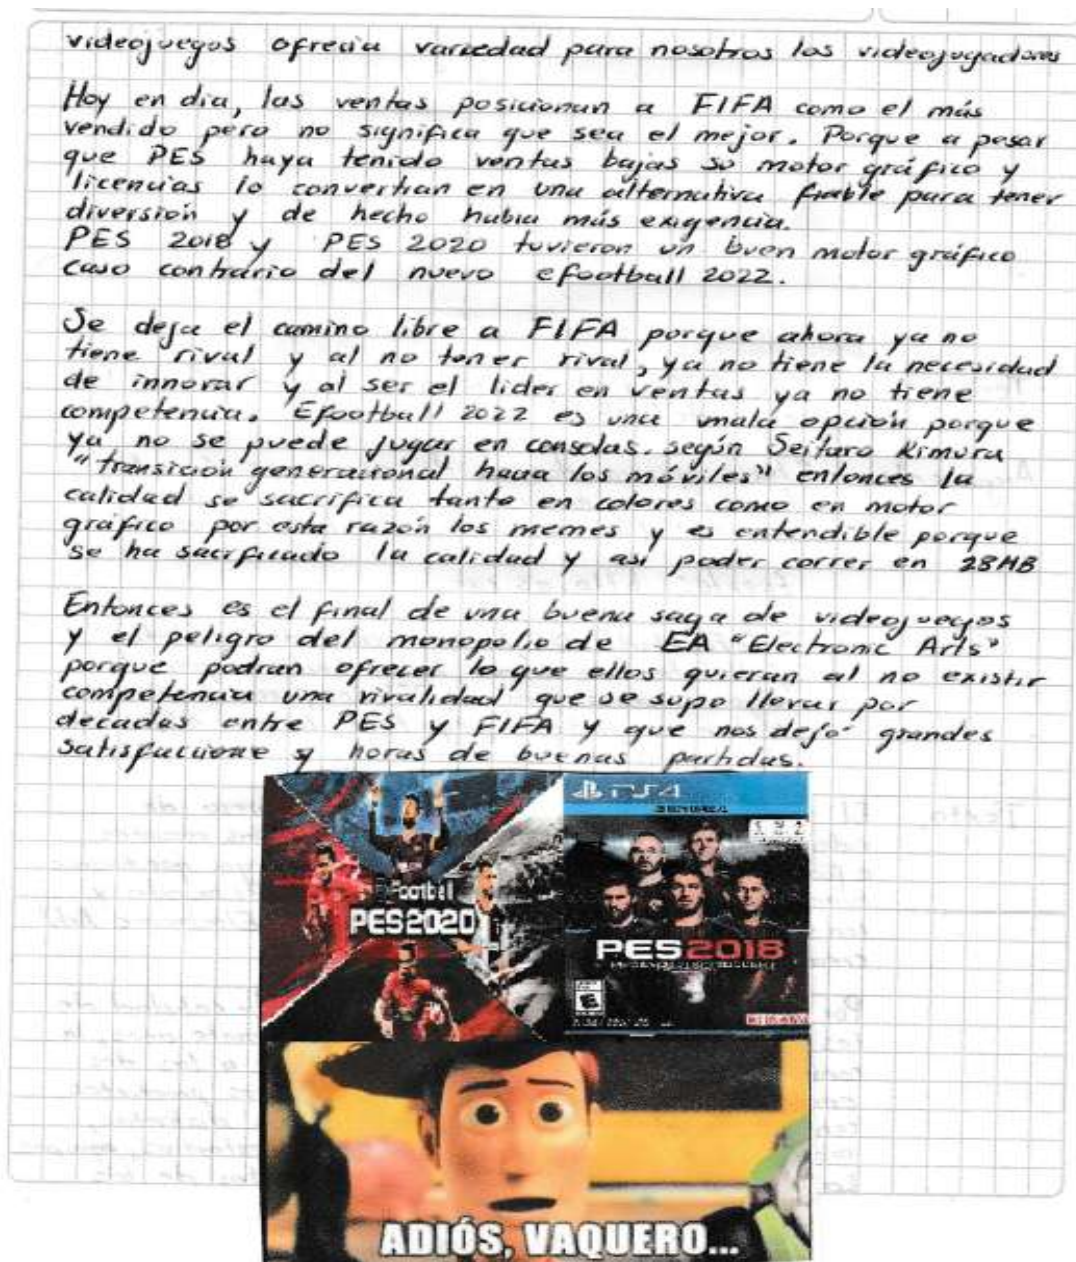 videojuegos ofrecia variedad para nosotros los videojugadores
Hoy en dia, las ventas posicionan a FIFA como el más
vendido pero no significa que sea el mejor. Porque a pesar
que PES haya tenido ventas bajas su motor gráfico y
licencias lo convertian en una alternativa fiable para tener
diversión y de hecho habia más exigencia.
PES 2018 y PES 2020 tuvieron un buen motor gráfico
caso contrario del nuevo efootball 2022.
Se deja el camino libre a FIFA porque ahora ya no
tiene rival y al no tener rival, ya no tiene la necesidad
de innovar y al ser el lider en ventas ya no tiene
competencia. Efootball 2022 es una mala opción porque
ya no se puede jugar en consolas. según Seitaro Kimura
"transición generacional hacia los móviles" entonces la
calidad se sacrifica tanto en colores como en motor
gráfico por esta razón los memes y es entendible porque
se ha sacrificado la calidad y asi poder correr en 28MB
Entonces es el final de una buena saga de videojuegos
y el peligro del monopolio de EA "Electronic Arts"
porque podran ofrecer lo que ellos quieran al no existir
competencia una rivalidad que se supo llevar por
decadas entre PES y FIFA y que nos dejó grandes
satisfaccione y horas de buenas partidas.
PS4
Football
PES2020
PES2018
E
ADIÓS, VAQUERO...